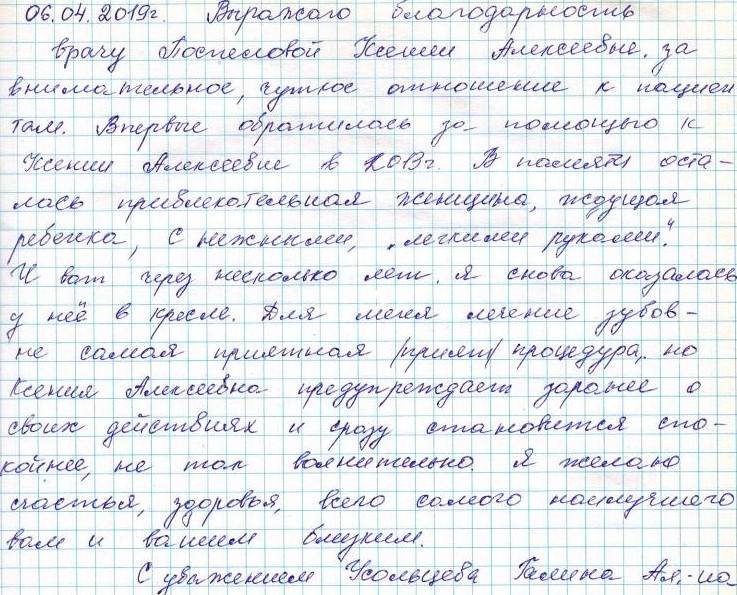 06.04.2019г. Выражаю благодарность
врачу Поспеловой Ксении Алексеевне за
внимательное, чуткое отношение к пациен
там. Впервые обратилась за помощью к
Ксении Алексеевне в 2013г. В памяти оста-
лась привлекательная женщина, ждущая
ребенка, с нежными, „легкими руками".
И вот через несколько лет я снова оказалась
у неё в кресле. Для меня лечение зубов-
не самая приятная /прият/ процедура, но
Ксения Алексеевна предупреждает заранее о
своих действиях и сразу становится спо-
койнее, не так волнительно. Я желаю
счастья, здоровья, всего самого наилучшего
вам и вашим близким.
С уважением Усольцева Галина